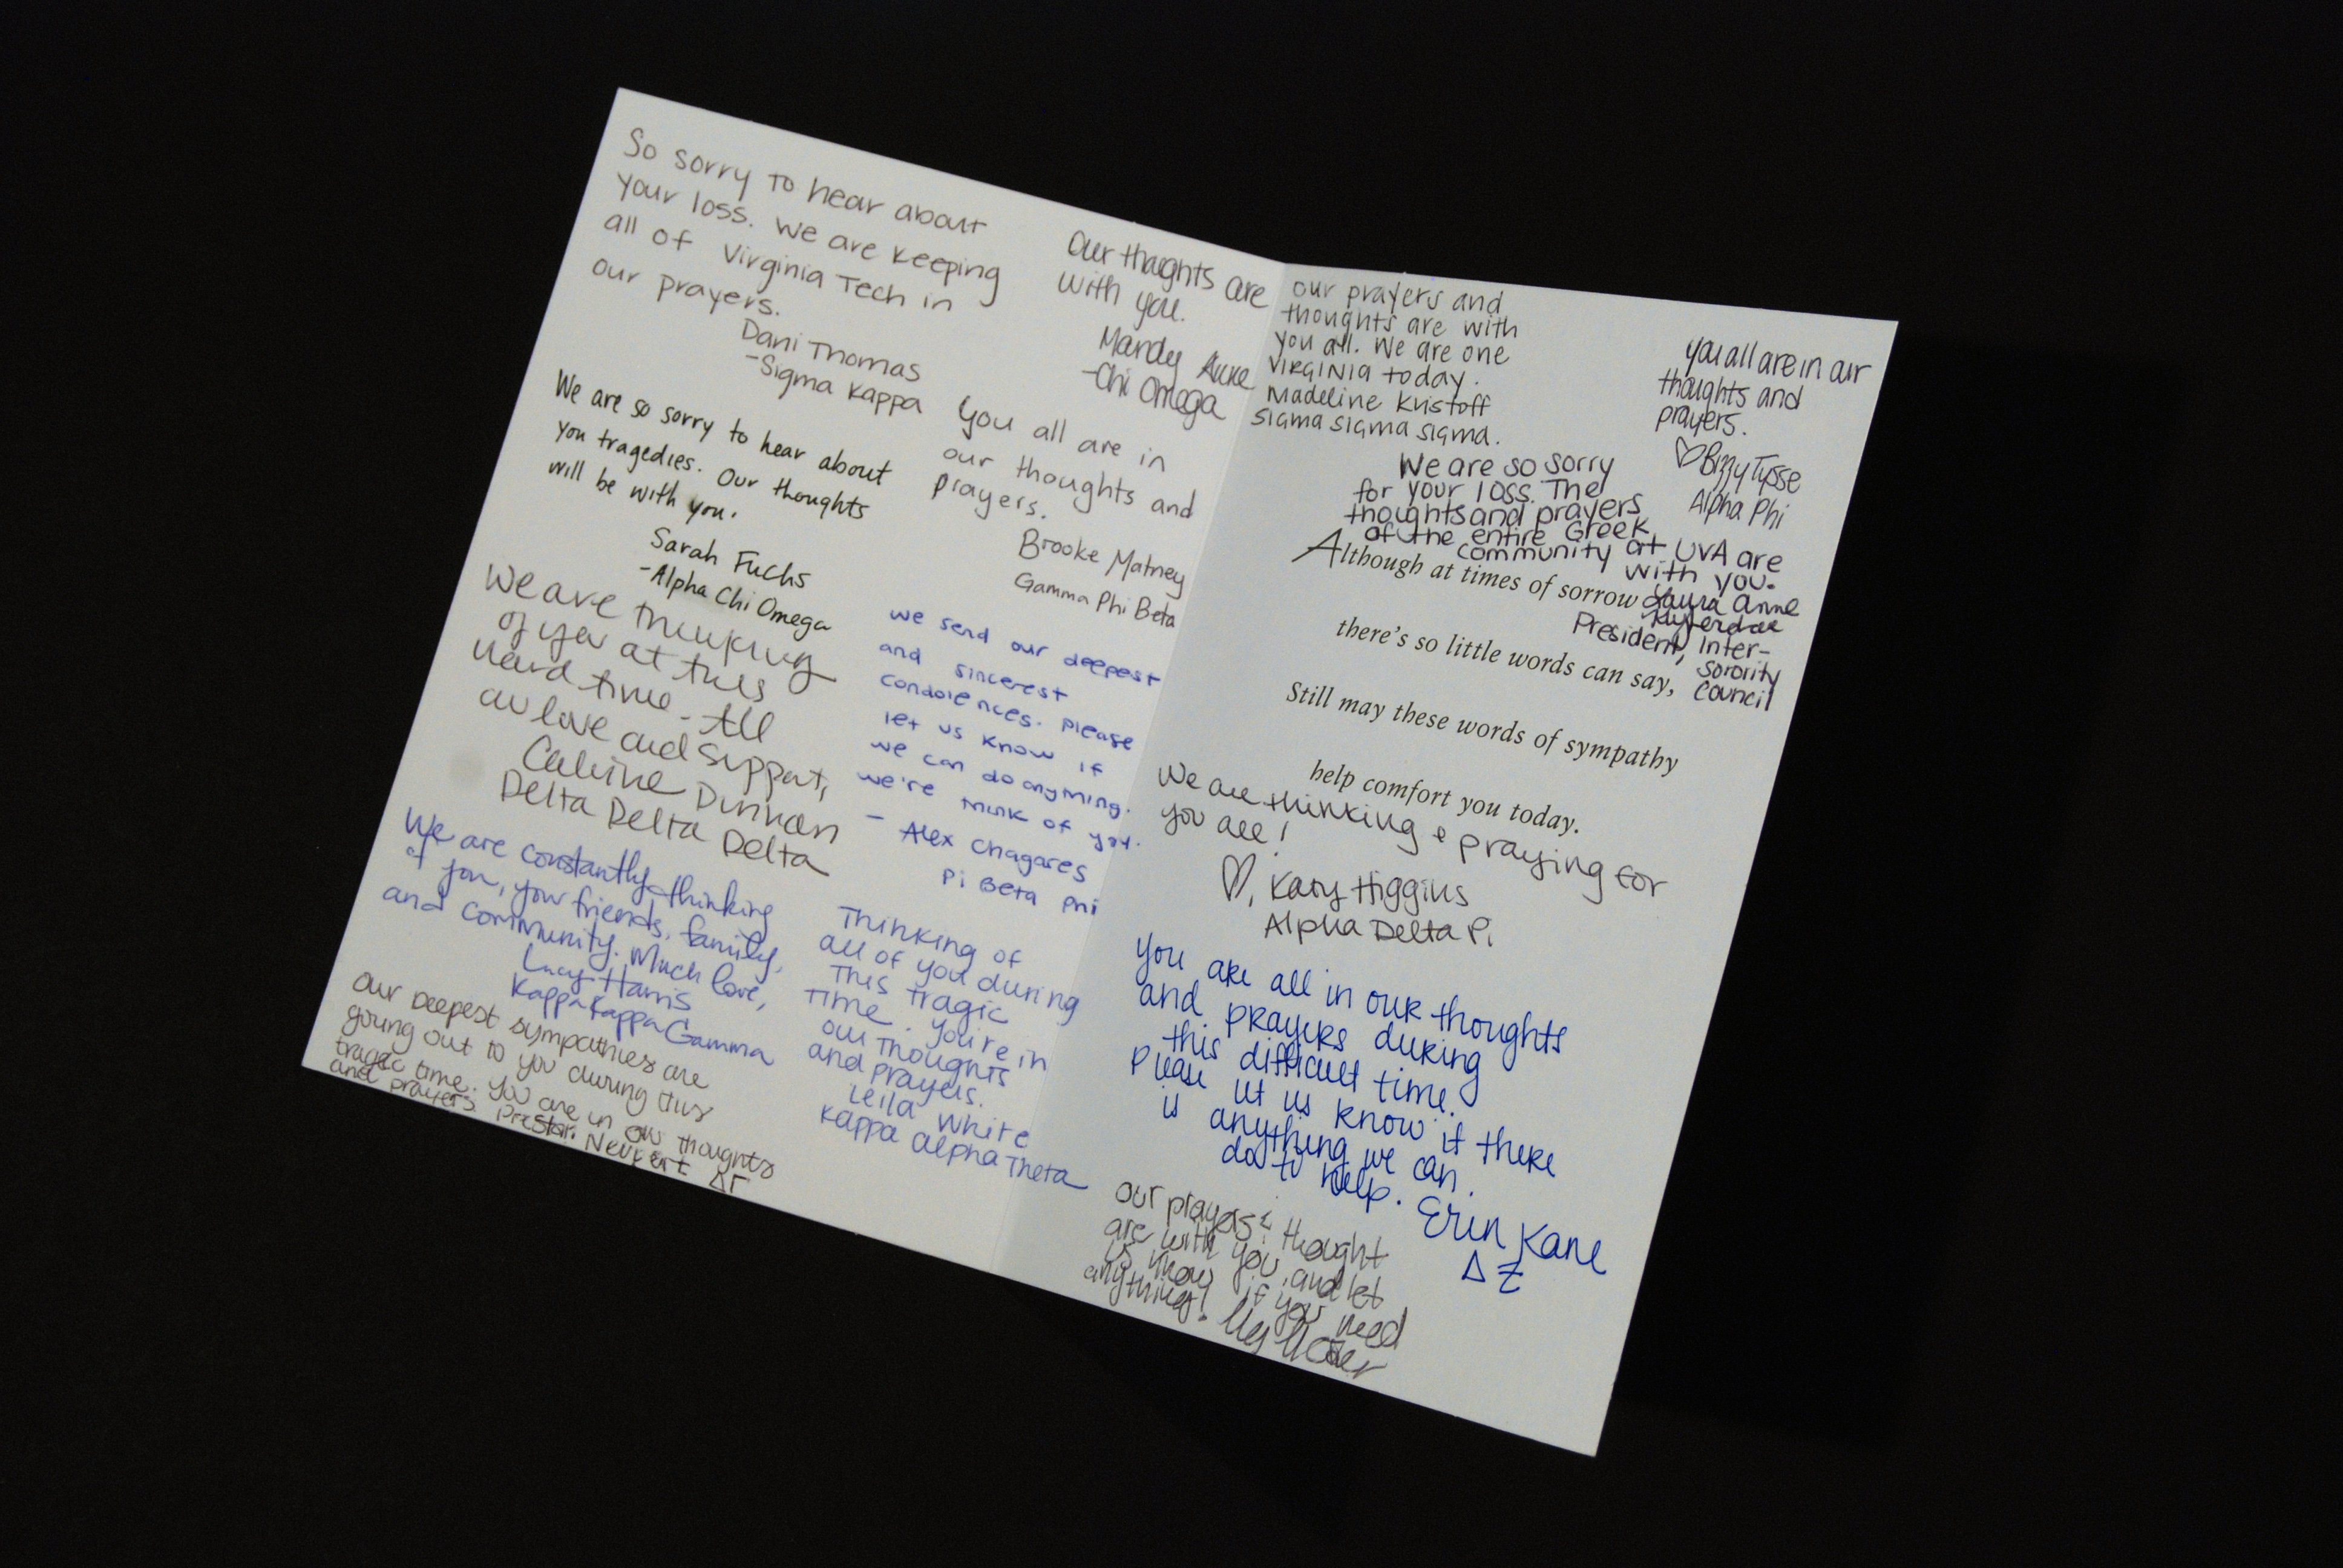 So sorry to hear about
your loss. We are keeping
all of Virginia Tech in
our prayers.
Dani Thomas
-Sigma Kappa
Our thoughts are
with you.
Mandy
-Chi Omega
We are so sorry to hear about
you tragedies. Our thoughts
will be with you.
Sarah Fuchs
-Alpha Chi Omega
You all are in
our thoughts and
prayers.
Brooke Matney
Gamma Phi Beta
We are thinking
of you at this
hard time. All
our love and support,
Dinnan
Delta Delta Delta
we send our deepest
and sincerest
condolences. Please
let us know if
we can do anything.
we're think of you.
- Alex Chagares
Pi Beta Phi
We are constantly thinking
of you, your friends, family,
and community. Much love,
Lucy Harris
Kappa Kappa Gamma
Thinking of
all of you during
this tragic
time. You're in
our thoughts
and prayers.
Leila White
Kappa Alpha Theta
Our deepest sympathies are
going out to you during this
tragic time. You are in our thoughts
and prayers.
ΔΓ
our prayers and
thoughts are with
you all. We are one
VIRGINIA today.
Madeline Kristoff
Sigma Sigma Sigma.
you all are in our
thoughts and
prayers.
♡ Bizzy Tysse
Alpha Phi
We are so sorry
for your loss. The
thoughts and prayers
of the entire Greek
community at UVA are
with you.
Laura Anne
President, Inter-
Sorority
Council
Although at times of sorrow
there's so little words can say,
Still may these words of sympathy
help comfort you today.
We are thinking & praying for
you all!
♡, Katy Higgins
Alpha Delta Pi
you are all in our thoughts
and prayers during
this difficult time.
Please let us know if there
is anything we can
do to help. Erin Kane
ΔZ
our prayers & thought
are with you and let
us know if you need
anything!